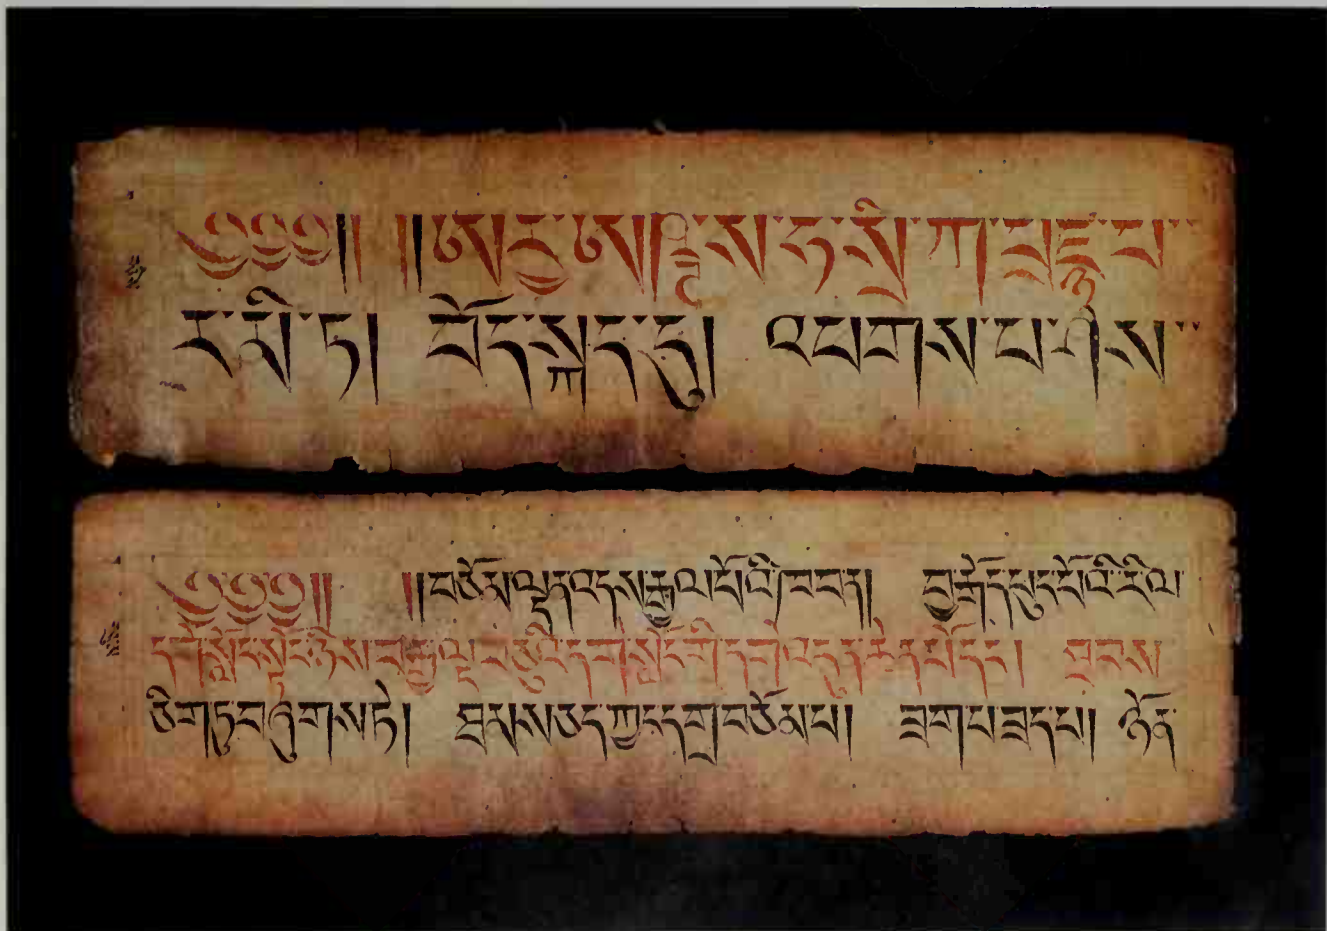 ༄༅༅།། །།ཨརྱ་ཨཥྚ་ས་ཧ་སྲི་ཀ་པྲཛྙ་པ་
ར་མི་ཏ། བོད་སྐད་དུ། འཕགས་པ་ཤེས་
༄༅༅།། །།བཅོམ་ལྡན་འདས་རྒྱལ་པོའི་ཁབ་ན། བྱ་རྒོད་ཕུང་པོའི་རི་ལ་
དགེ་སློང་སྟོང་ཉིས་བརྒྱ་ལྔ་བཅུའི་དགེ་སློང་གི་དགེ་འདུན་ཆེན་པོ་དང་། ཐབས་
ཅིག་ཏུ་བཞུགས་ཏེ། ཐམས་ཅད་ཀྱང་དགྲ་བཅོམ་པ། ཟག་པ་ཟད་པ། ཉོན་